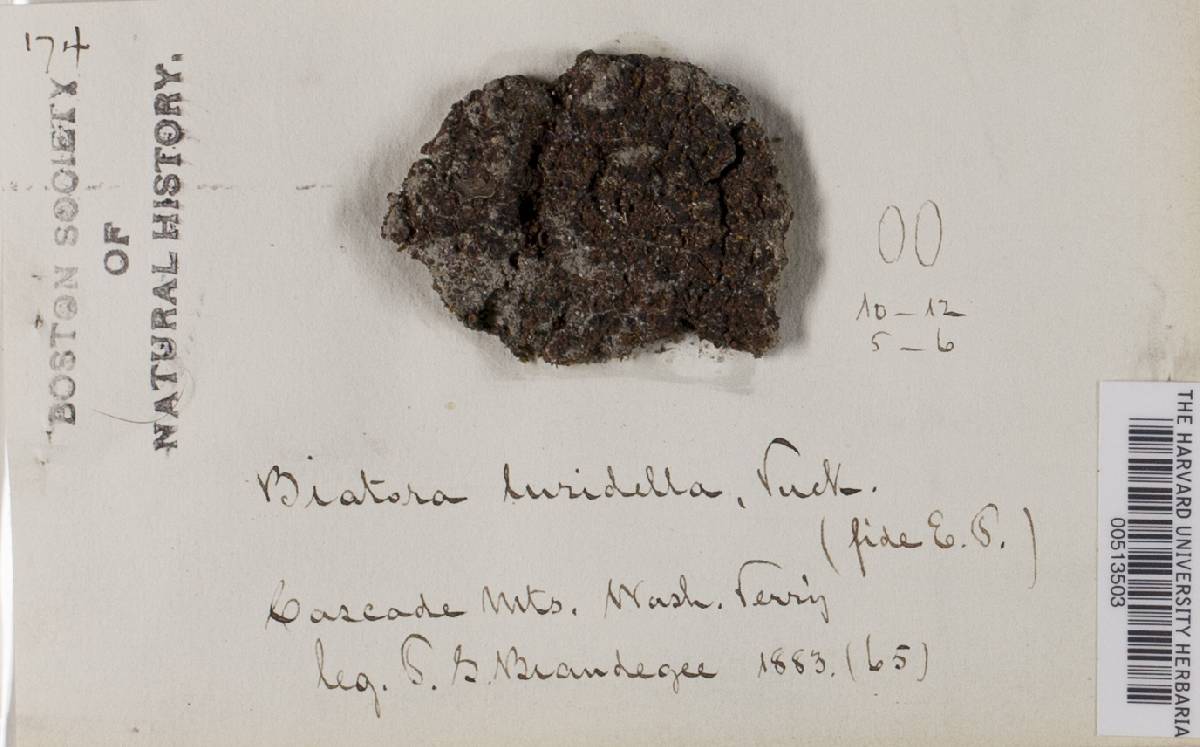 74
BOSTON SOCIETY
OF
NATURAL HISTORY.
10 – 12
5 – 6
Biatora luridella, Tuck.
(fide E. T.)
Cascade Mts. Wash. Terr'y
leg. T. S. Brandegee 1883. (65)
THE HARVARD UNIVERSITY HERBARIA
00513503